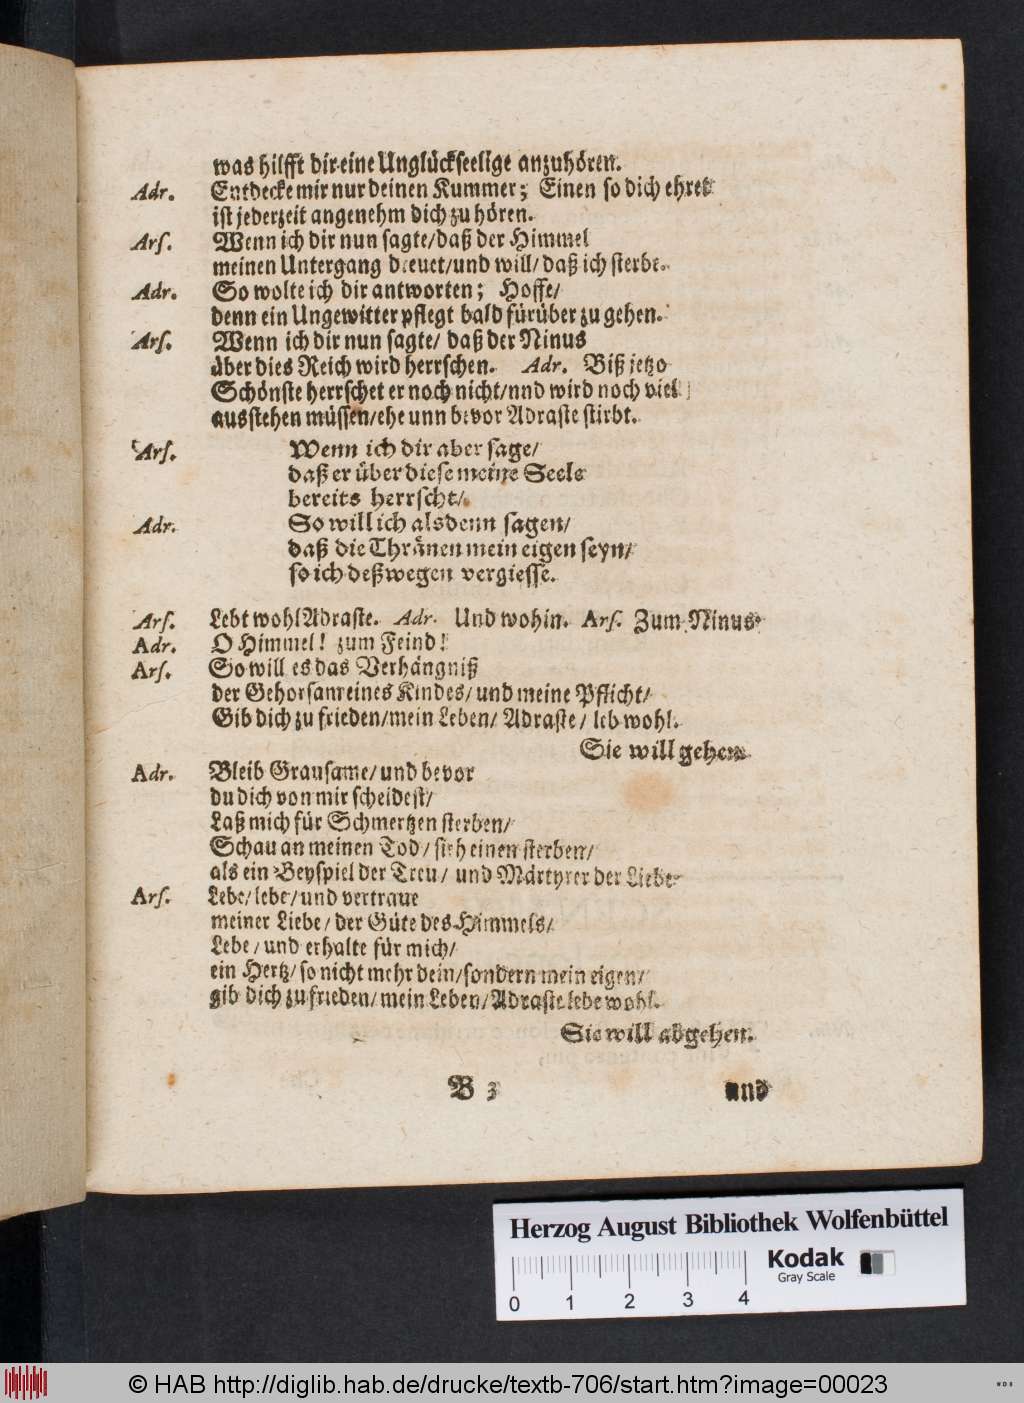 was hilfft dir eine Unglückseelige anzuhören.
Adr. Entdecke mir nur deinen Kummer; Einen so dich ehret
ist jederzeit angenehm dich zu hören.
Arſ. Wenn ich dir nun sagte/ daß der Himmel
meinen Untergang dreuet/ und will/ daß ich sterbe.
Adr. So wolte ich dir antworten; Hoffe/
denn ein Ungewitter pflegt bald fürüber zu gehen.
Arſ. Wenn ich dir nun sagte/ daß der Ninus
über dies Reich wird herrschen. Adr. Biß jetzo
Schönste herrschet er noch nicht/ nnd wird noch viel
ausstehen müssen/ ehe unn bevor Adraste stirbt.
Arſ. Wenn ich dir aber sage/
daß er über diese meine Seele
bereits herrscht/
Adr. So will ich alsdenn sagen/
daß die Thränen mein eigen seyn/
so ich deßwegen vergiesse.
Arſ. Lebt wohl Adraste. Adr. Und wohin. Arſ. Zum Ninus
Adr. O Himmel! zum Feind!
Arſ. So will es das Verhängniß
der Gehorsam eines Kindes/ und meine Pflicht/
Gib dich zu frieden/ mein Leben/ Adraste/ leb wohl.
Sie will gehen
Adr. Bleib Grausame/ und bevor
du dich von mir scheidest/
Laß mich für Schmertzen sterben/
Schau an meinen Tod/ sieh einen sterben/
als ein Beyspiel der Treu/ und Märtyrer der Liebe
Arſ. Lebe/ lebe/ und vertraue
meiner Liebe/ der Güte des Himmels/
Lebe/ und erhalte für mich/
ein Hertz/ so nicht mehr dein/ sondern mein eigen/
gib dich zu frieden/ mein Leben/ Adraste lebe wohl.
Sie will abgehen.
B 3 und
Herzog August Bibliothek Wolfenbüttel
Kodak
Gray Scale
0 1 2 3 4
© HAB http://diglib.hab.de/drucke/textb-706/start.htm?image=00023